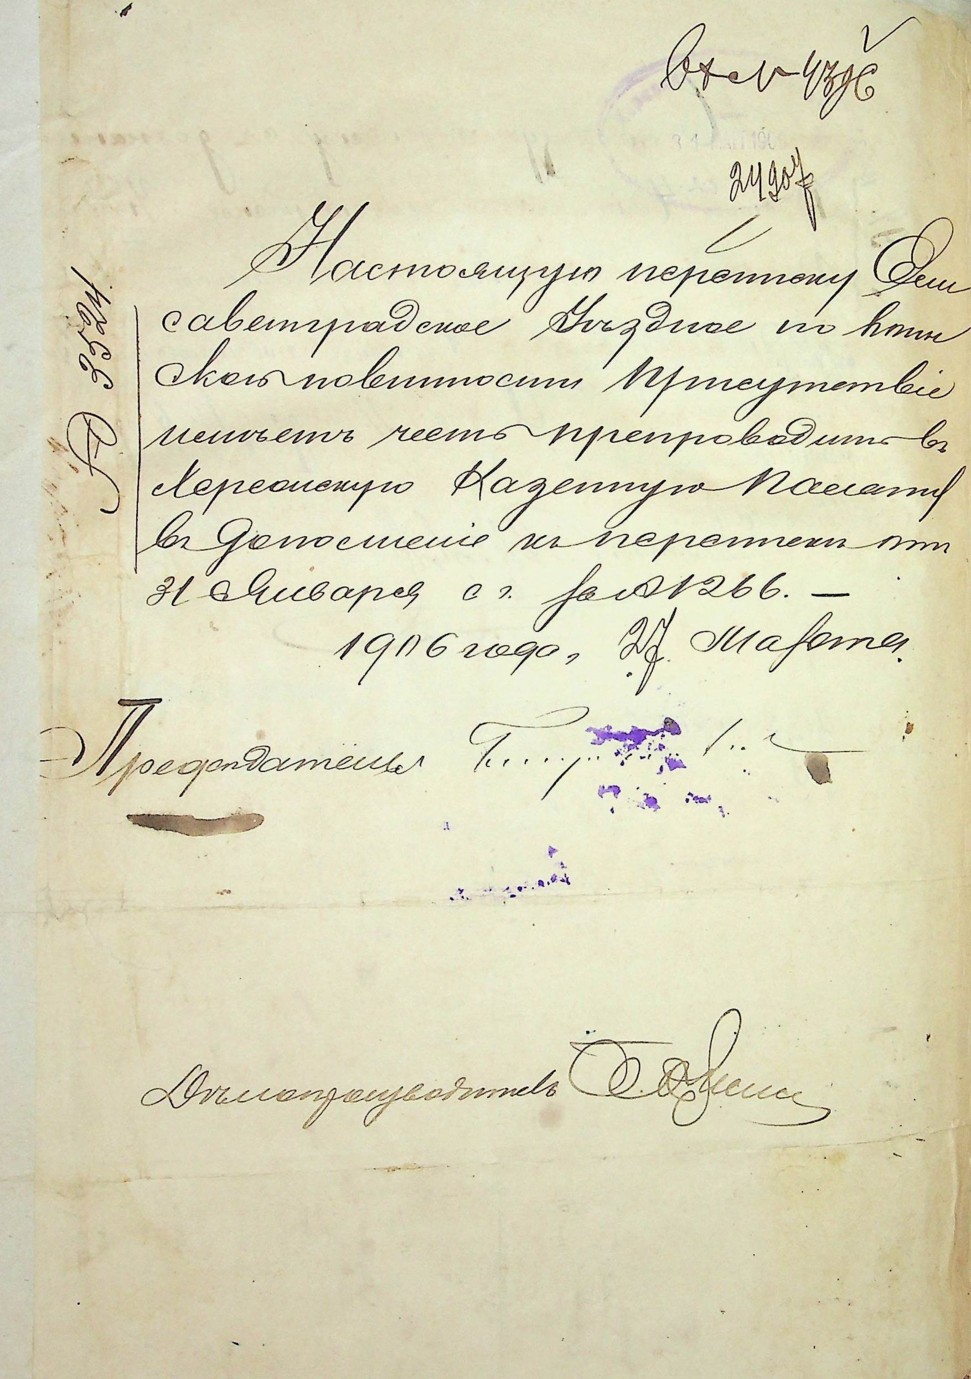 Вх № 4396
24907
№ 3524
Настоящую переписку Ели
саветградское Уѣздное по воин
ской повинности Присутствіе
имѣетъ честь препроводить въ
Херсонскую Казенную Палату
въ дополненіе къ перепискѣ отъ
31 Января с г. за № 1266. —
1906 года, 27 Марта.
Предсѣдатель
Дѣлопроизводитель